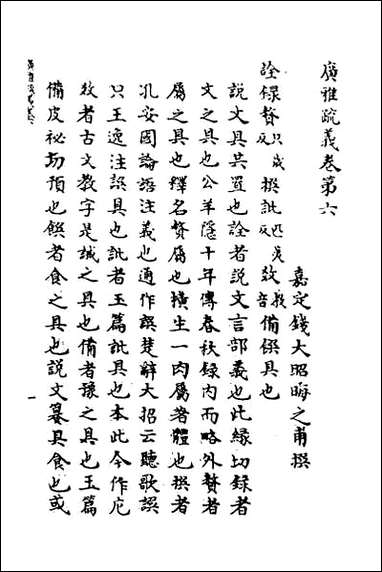 廣雅疏義卷第六
嘉定錢大昭晦之甫撰
詮錄贅反只歲撰訿反匹美效音教備僎具也
說文具共置也詮者說文言部義也此緣切錄者
文之具也公羊隱十年傳春秋錄內而略外贅者
屬之具也釋名贅屬也橫生一肉屬著體也撰者
孔安國論語注義也通作譔楚辭大招云聽歌譔
只王逸注譔具也訿者玉篇訿具也本此今作庀
效者古文教字是誠之具也備者豫之具也玉篇
備皮祕切預也僎者食之具也說文籑具食也或
一